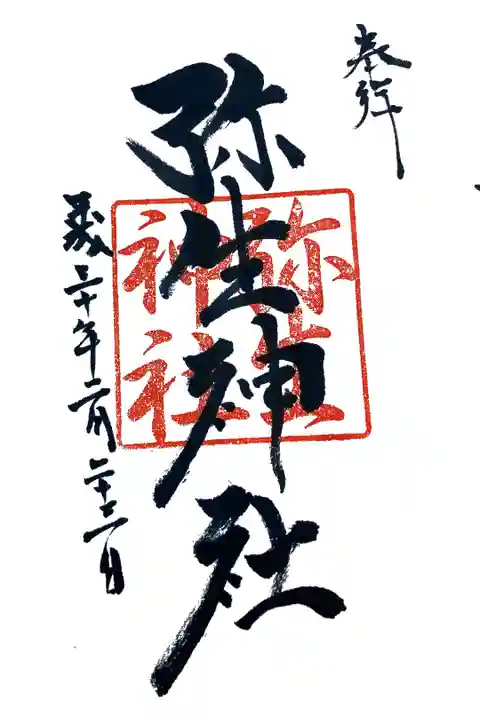 奉拝
弥生神社
弥生
神社
平成三十年二月二十三日